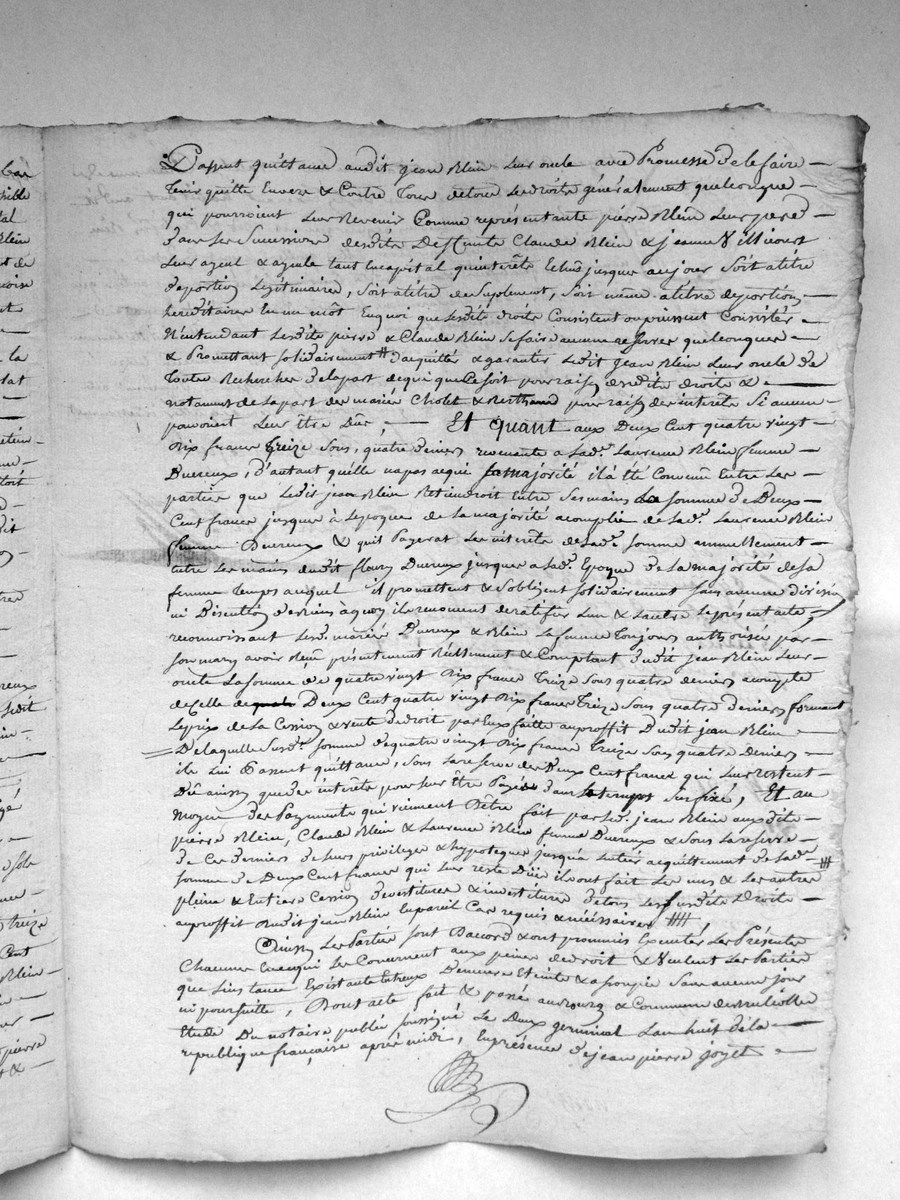 Passent quittance audit jean Klein leur oncle avec Promesse de le faire
tenir quitte Envers & Contre Tous de tous les droits généralement quelconque
qui pourroient leur Revenir Comme représentants pierre Klein leur pere
dans les Successions desdits Claude Klein & jeanne Villicourt
leur ayeul & ayeule tant En capital qu'interêts Echus jusque aujour Soit a titre
de portion Legitimaire, Soit a titre de Suplement, Soit même a titre de portion
hereditaire En un môt En quoi que lesdits droits Consistent ou puissent Consister
N'entendant lesdits pierre & Claude Klein Se faire aucune reserve quelconque
& Promettant Solidairement d'acquitter & garantir ledit jean Klein leur oncle de
Toutes Recherches de la part de qui que Ce soit pour raison desdits droits &
notament de la part des mariés Cholet & Berthand pour raison des interêts Si aucun
pouvoient Leur être Dûs; Et quant aux Deux Cent quatre vingt
Dix francs treize Sous, quatre deniers revenants a lad.e Laurence Klein femme
Duereux, d'autant qu'elle n'a pas acqui sa majorité il a été Convenu Entre les
parties que ledit jean Klein Retiendroit Entre Ses mains la Somme de Deux
Cent francs jusques à L'epoque de la majorité acomplie de lad.e Laurence Klein
femme Duereux & quil Payerat les interêts de lad.e Somme annuellement
entre les mains dudit fleury Duereux jusques a lad.e Epoque de la majorité de sa
femme Temps auquel il promettent & S'obligent Solidairement Sans aucune division
ni Discution de ratifier L'un & L'autre Le présent acte,
reconnoissant lesd. mariés Duereux & Klein la femme toujours authorisée par
Son mary avoir Reçu présentement Réellement & Comptant dudit jean Klein Leur
oncle La Somme de quatre vingt Dix francs Treize Sous quatre deniers acompte
de Celle de Deux Cent quatre vingt Dix francs Treize Sous quatre deniers formant
Le prix de la Cession & vente de droit par Eux faitte au proffit Dudit jean Klein
De laquelle Susd.e Somme de quatre vingt Dix francs treize Sous quatre Deniers
ils Lui Passent quittance, Sous la reserve des Deux Cent francs qui leur restent
Dû ainsi que des interêts pour leur être Payés dans le temps Sus fixé, Et au
Moyen des Payments qui viennent D'être fait par led. jean Klein auxdits
pierre Klein, Claude Klein & Laurence Klein femme Duereux & Sous la reserve
de Ces derniers de leurs privileges & hypoteques jusqu'a Entier acquittement de lad.e
Somme de Deux Cent francs qui leur reste Düe il ont fait les uns & les autres
pleine & Entiere Cession Devestiture & investiture de tous les susdits Droits
au proffit dudit jean Klein En pareil Cas requis & nécessaires
Ainsi les Parties Sont D'acord & ont promis Executer les Présentes
Chacune En ce qui les Concernent aux peines de droit & Veulent les Parties
que L'instance Existante Entreux Demeure Eteinte & assoupie Sans aucun jour
ni poursuitte, Dont acte fait & passé au bourg & Commune de
Etude Du notaire public soussigné Le Deux germinal L'an huit de la
republique française après midi, En présence de jean pierre goyet